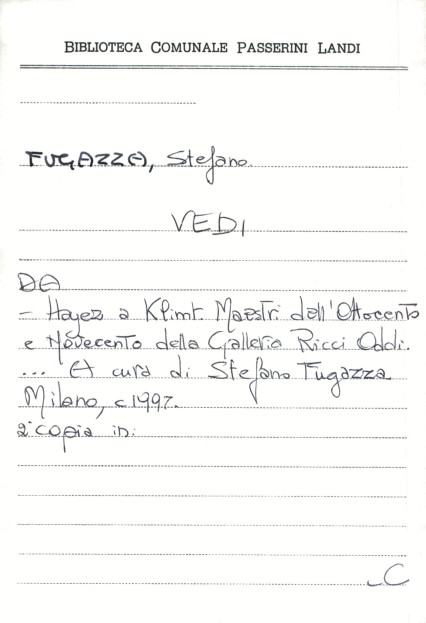 BIBLIOTECA COMUNALE PASSERINI LANDI
FUGAZZA, Stefano.
VEDI
DA
- Hayez a Klimt. Maestri dell'Ottocento
e Novecento della Galleria Ricci Oddi.
... A cura di Stefano Fugazza
Milano, c1997.
2° copia in:
C